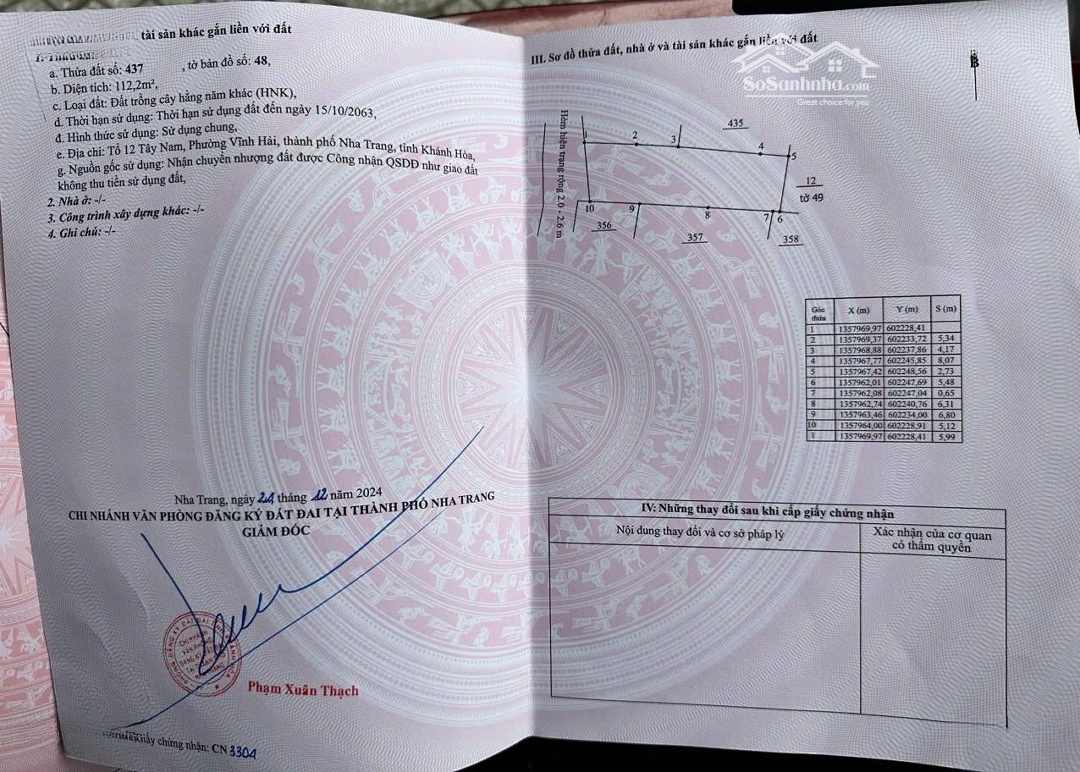 tài sản khác gắn liền với đất
a. Thửa đất số: 437 , tờ bản đồ số: 48,
b. Diện tích: 112,2m²,
c. Loại đất: Đất trồng cây hằng năm khác (HNK),
d. Thời hạn sử dụng: Thời hạn sử dụng đất đến ngày 15/10/2063,
đ. Hình thức sử dụng: Sử dụng chung,
e. Địa chỉ: Tổ 12 Tây Nam, Phường Vĩnh Hải, thành phố Nha Trang, tỉnh Khánh Hòa,
g. Nguồn gốc sử dụng: Nhận chuyển nhượng đất được Công nhận QSDĐ như giao đất
không thu tiền sử dụng đất,
2. Nhà ở: -/-
3. Công trình xây dựng khác: -/-
4. Ghi chú: -/-
Nha Trang, ngày 24 tháng 12 năm 2024
CHI NHÁNH VĂN PHÒNG ĐĂNG KÝ ĐẤT ĐAI TẠI THÀNH PHỐ NHA TRANG
GIÁM ĐỐC
Phạm Xuân Thạch
giấy chứng nhận: CN 3304
III. Sơ đồ thửa đất, nhà ở và tài sản khác gắn liền với đất
SoSanhnha.com
Great choice for you
B
Hẻm hiện trạng rộng 2.0 - 2.6 m
435
1 2 3 4 5
12
tờ 49
10 9 8 7 6
356 357 358
Góc thửa X (m) Y (m) S (m)
1 1357969,97 602228,41
2 1357969,37 602233,72 5,34
3 1357968,88 602237,86 4,17
4 1357967,77 602245,85 8,07
5 1357967,42 602248,56 2,73
6 1357962,01 602247,69 5,48
7 1357962,08 602247,04 0,65
8 1357962,74 602240,76 6,31
9 1357963,46 602234,00 6,80
10 1357964,00 602228,91 5,12
1 1357969,97 602228,41 5,99
IV: Những thay đổi sau khi cấp giấy chứng nhận
Nội dung thay đổi và cơ sở pháp lý
Xác nhận của cơ quan
có thẩm quyền